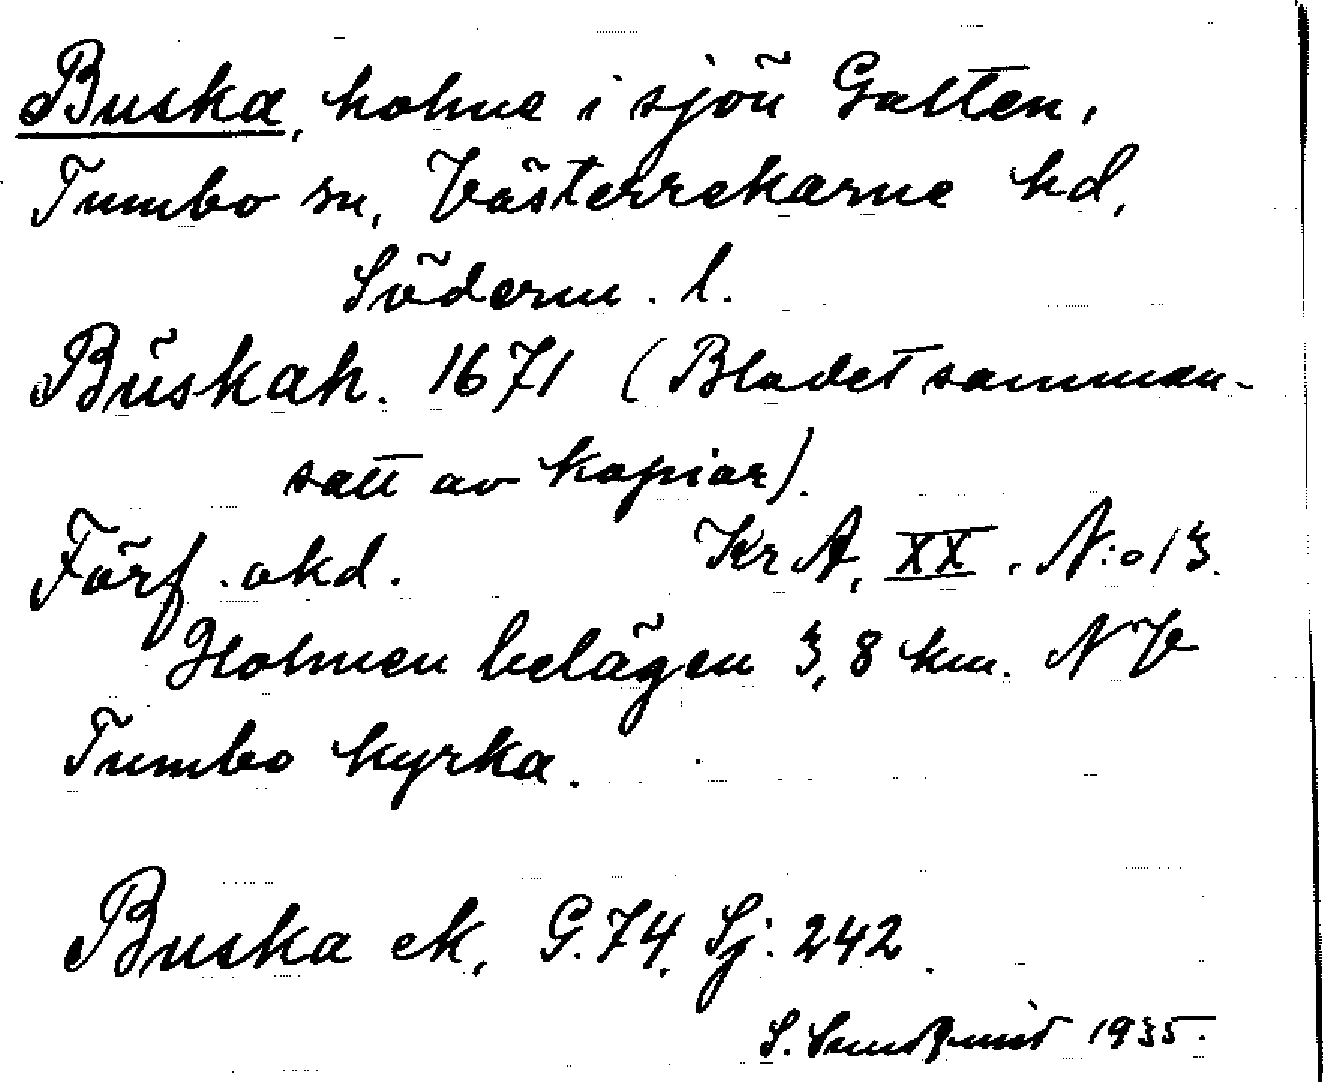 Buska, holme i sjön Galten,
Tumbo sn, Västerrekarne hd,
Söderm. l.
Buskah. 1671 (Bladet samman-
satt av kopior).
Förf. okd. Kr A, XX. N:o 13.
Holmen belägen 3,8 km. NV
Tumbo kyrka.
Buska ek, G.74, Sj: 242.
S. Sundqvist 1935.